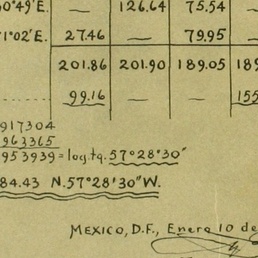 0°49'E. — 126.64 75.54
1°02'E. 27.46 — 79.95
201.86 201.90 189.05 189
99.16 — — 155
917304
963365
953939 = log.tg. 57°28'30"
84.43 N.57°28'30"W.
MEXICO, D.F., Enero 10 de